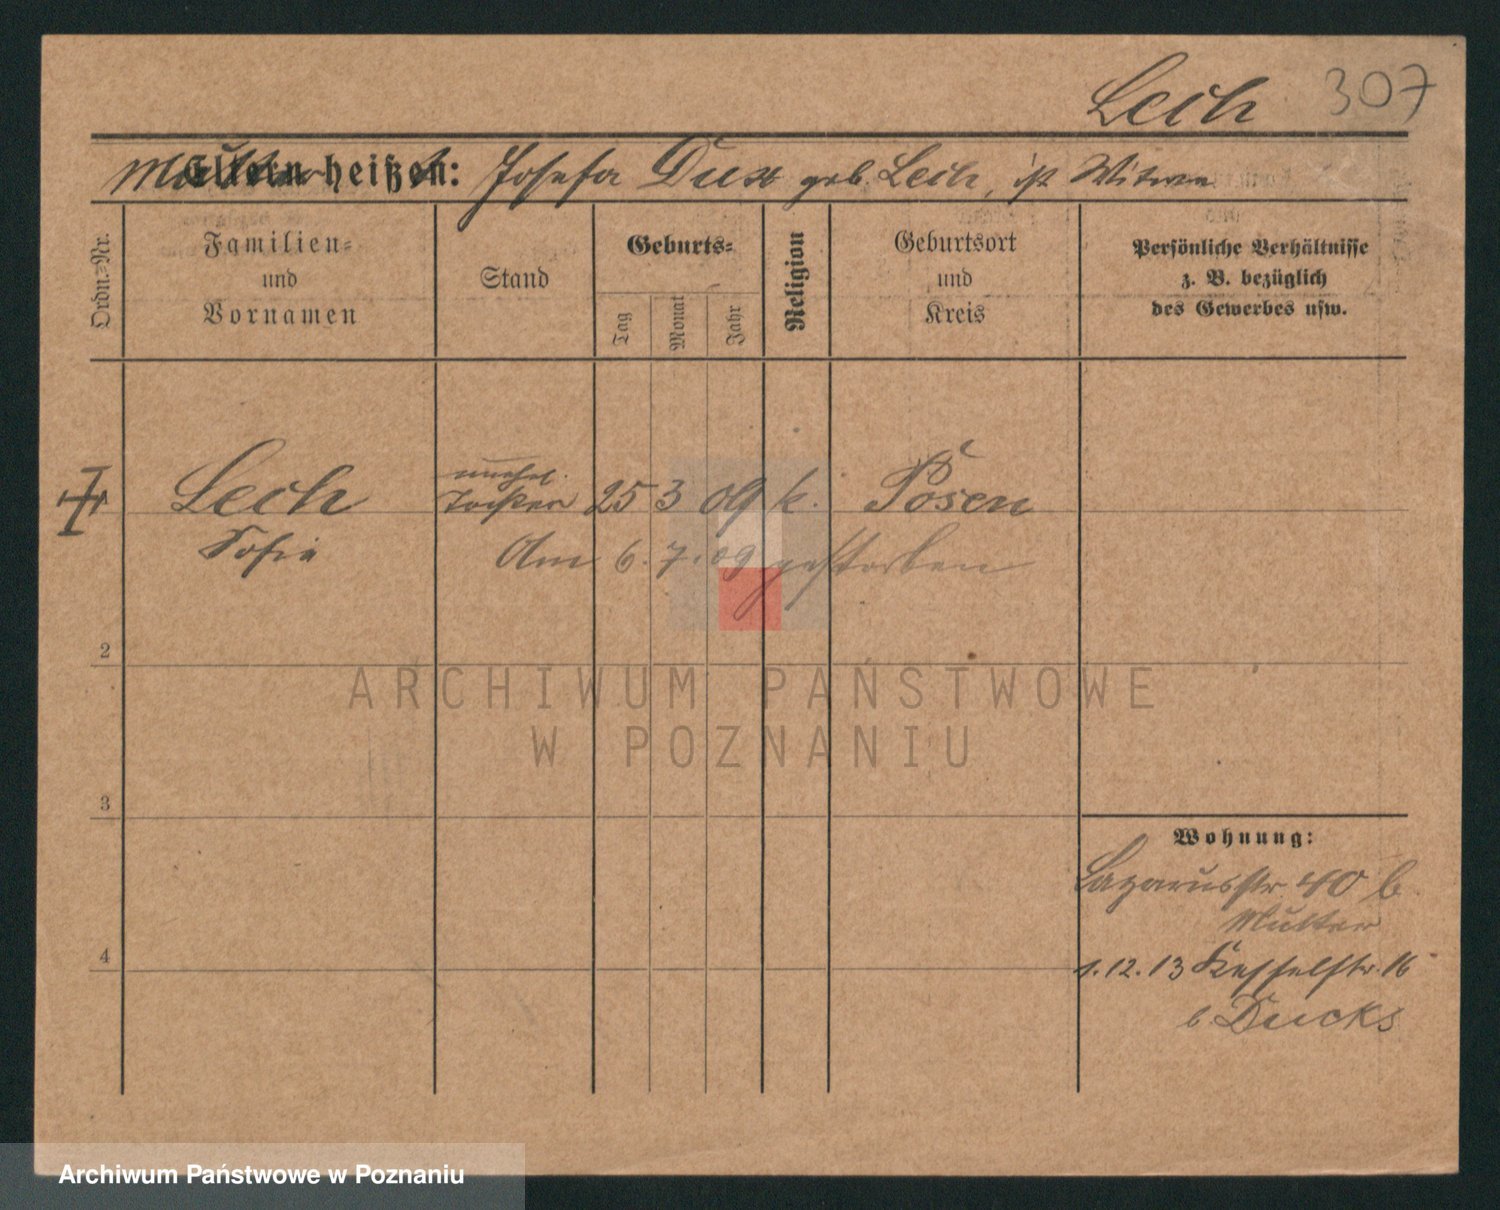 Lech 307
Mutter heißt: Josefa Dux geb. Lech, ist Witwe
Ordn.=Nr.
Familien=
und
Vornamen
Stand
Geburts=
Tag
Monat
Jahr
Religion
Geburtsort
und
Kreis
Persönliche Verhältnisse
z. B. bezüglich
des Gewerbes usw.
unehel.
Lech Tochter 25 3 09 k. Posen
Sofie Am 6. 7. 09 gestorben
2
ARCHIWUM PAŃSTWOWE
W POZNANIU
3
Wohnung:
Lazarusstr 40 b
Mutter
4
1. 12. 13 Kesselstr. 16
b. Ducks
Archiwum Państwowe w Poznaniu